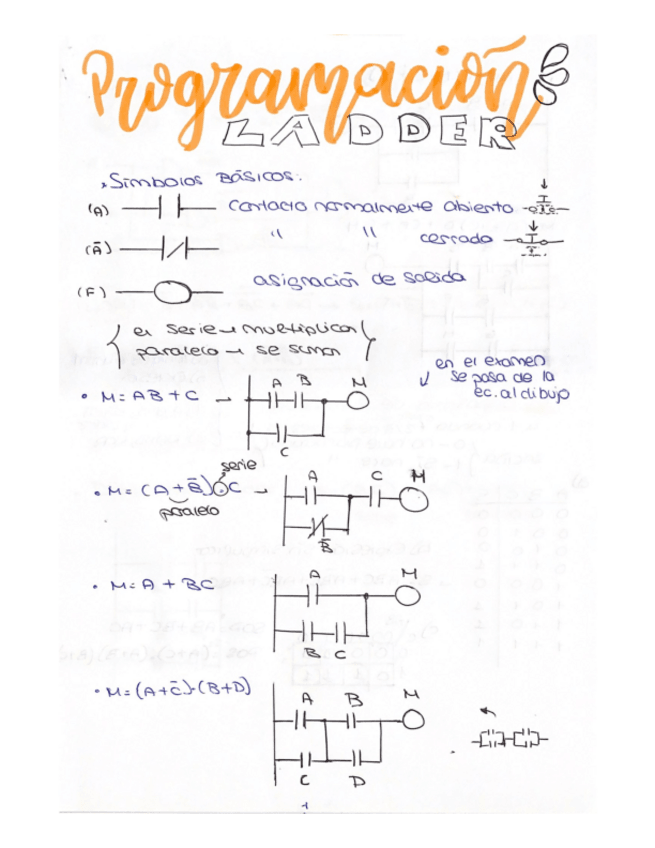 Programación
LADDER
Símbolos Básicos:
(A) contacto normalmente abierto
(Ā) " " cerrado
(F) asignación de salida
en serie → multiplican
paralelo → se suman
en el examen
se pasa de la
ec. al dibujo
• M = AB + C →
A B M
C
serie
• M = (A + B̄) · C →
paralelo
A C M
B̄
• M = A + BC
A M
B C
• M = (A + C̄) · (B + D)
A B M
C D
1